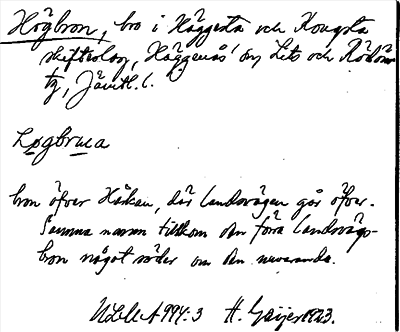 Högbron, bro i Häggesta och Kougsta
skifteslag, Häggenås sn, Lits och Rödöns
tg, Jämtl. l.
Løgbrua
bron öfver Hårkan, där landsvägen går öfver.
Samma namn tillkom den förra landsvägs-
bron något söder om den nuvarande.
ULMA 994:3 H. Geijer 1923.